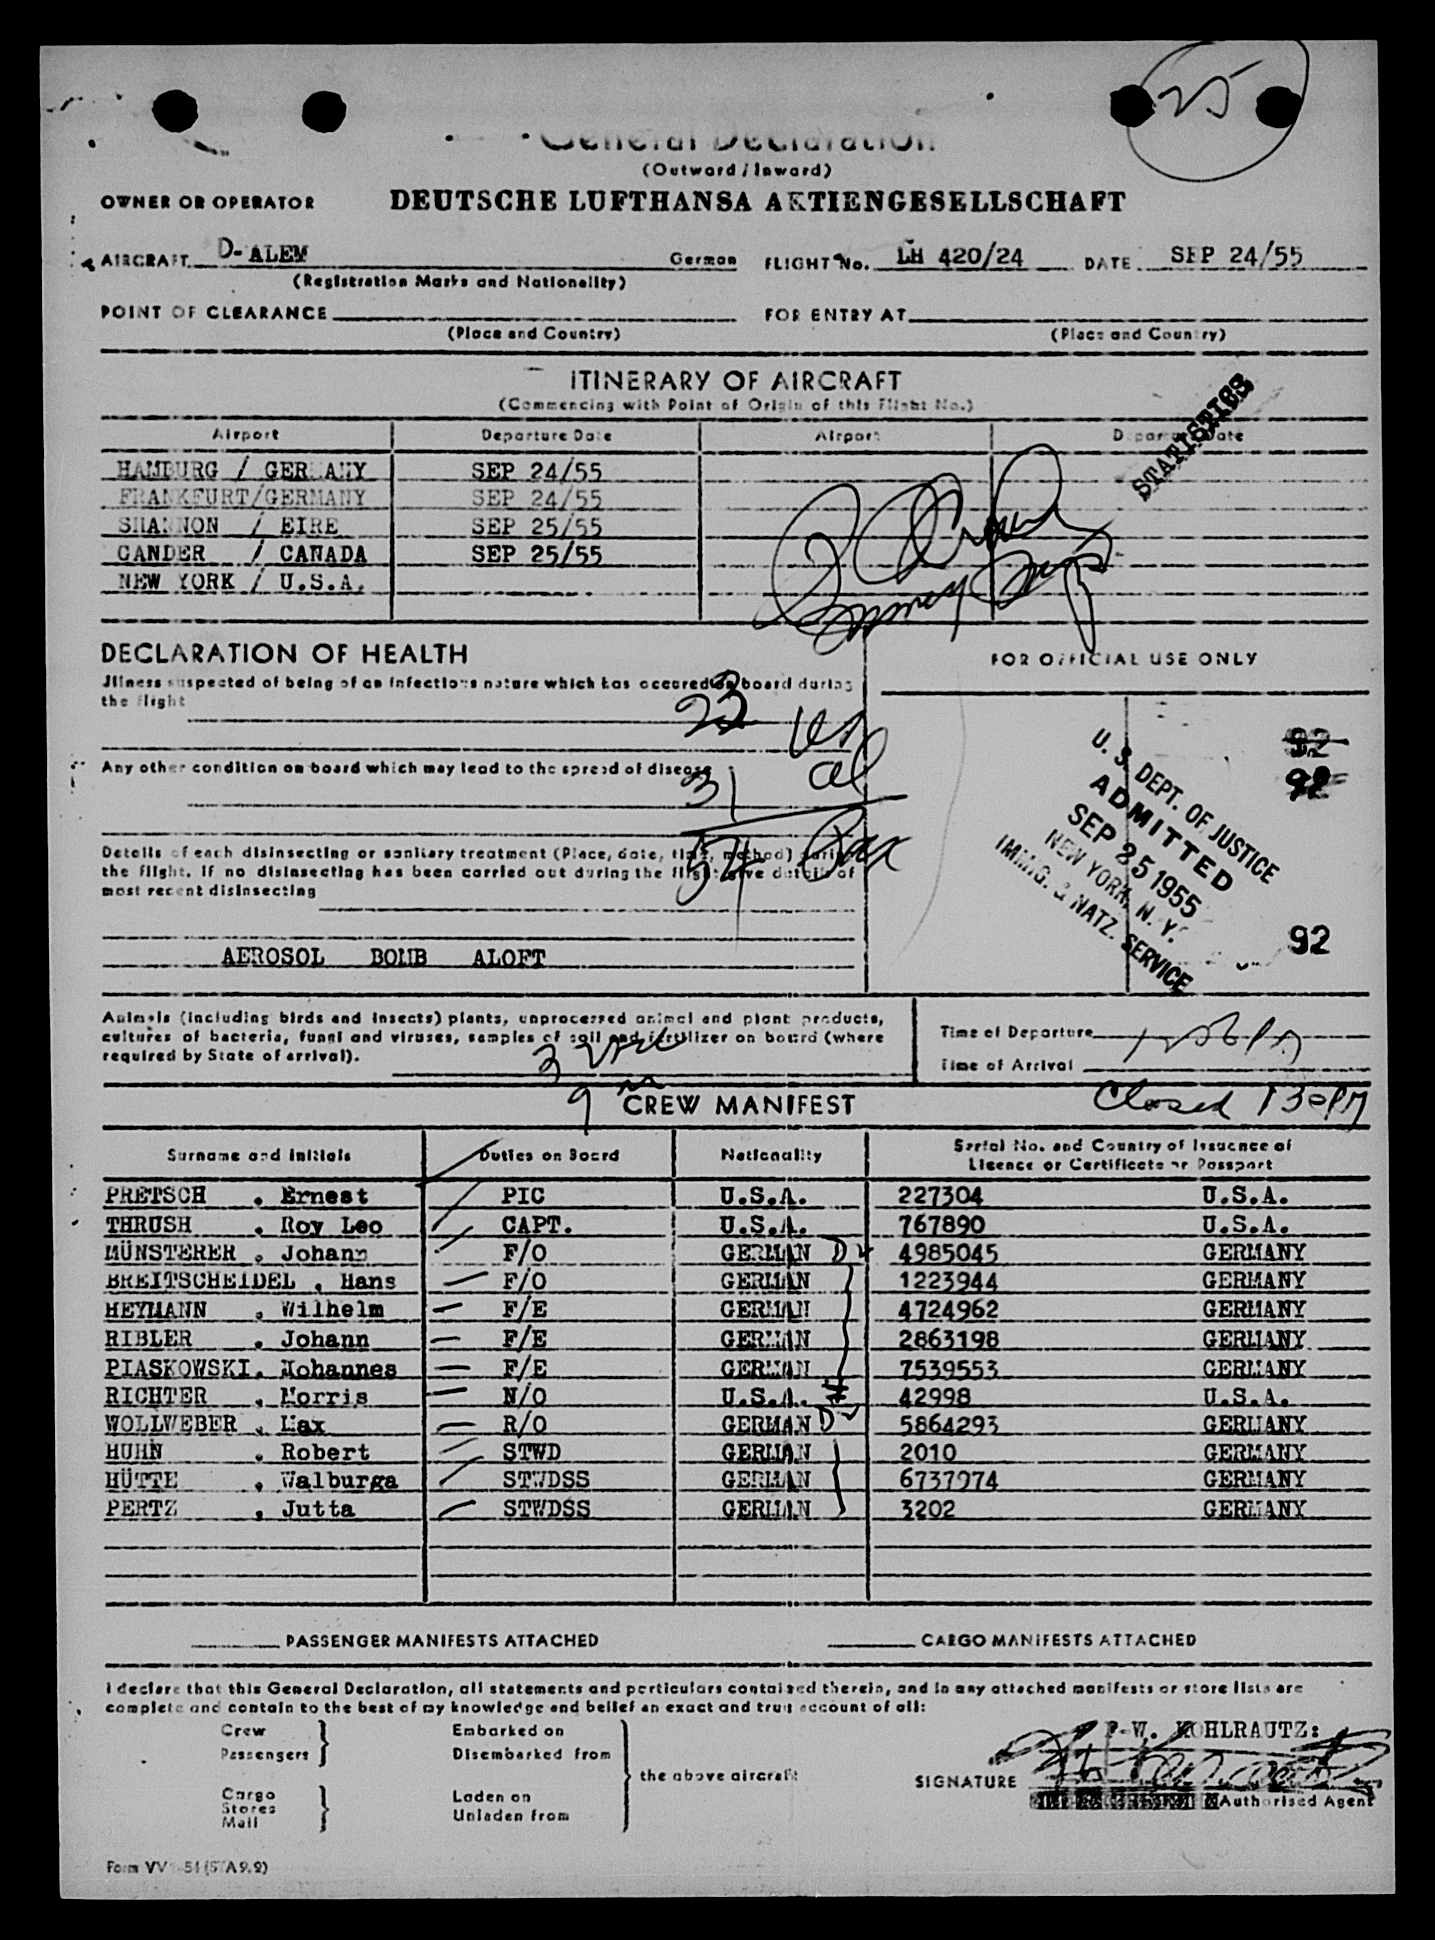 25
General Declaration
(Outward / Inward)
OWNER OR OPERATOR DEUTSCHE LUFTHANSA AKTIENGESELLSCHAFT
AIRCRAFT D-ALEM German FLIGHT No. LH 420/24 DATE SEP 24/55
(Registration Marks and Nationality)
POINT OF CLEARANCE FOR ENTRY AT
(Place and Country) (Place and Country)
ITINERARY OF AIRCRAFT
(Commencing with Point of Origin of this Flight No.)
STATISTICS
Airport Departure Date Airport Departure Date
HAMBURG / GERMANY SEP 24/55
FRANKFURT/GERMANY SEP 24/55
SHANNON / EIRE SEP 25/55
GANDER / CANADA SEP 25/55
NEW YORK / U.S.A.
DECLARATION OF HEALTH
FOR OFFICIAL USE ONLY
Illness suspected of being of an infectious nature which has occured on board during
the flight
23 us
Any other condition on board which may lead to the spread of disease
31 al
54 Pax
Details of each disinsecting or sanitary treatment (Place, date, time, method) during
the flight. If no disinsecting has been carried out during the flight give details of
most recent disinsecting
AEROSOL BOMB ALOFT
U. S. DEPT. OF JUSTICE
ADMITTED
SEP 25 1955
NEW YORK, N. Y.
IMMIG. & NATZ. SERVICE
92
92
92
Animals (including birds and insects) plants, unprocessed animal and plant products,
cultures of bacteria, fungi and viruses, samples of soil and fertilizer on board (where
required by State of arrival).
Time of Departure
Time of Arrival
3
9
Closed 130PM
CREW MANIFEST
Surname and Initials Duties on Board Nationality Serial No. and Country of Issuance of
Licence or Certificate or Passport
PRETSCH . Ernest PIC U.S.A. 227304 U.S.A.
THRUSH . Roy Leo CAPT. U.S.A. 767890 U.S.A.
MÜNSTERER . Johann F/O GERMAN D 4985045 GERMANY
BREITSCHEIDEL . Hans F/O GERMAN 1223944 GERMANY
HEYMANN . Wilhelm F/E GERMAN 4724962 GERMANY
RIBLER . Johann F/E GERMAN 2863198 GERMANY
PIASKOWSKI. Johannes F/E GERMAN 7539553 GERMANY
RICHTER . Morris N/O U.S.A. 42998 U.S.A.
WOLLWEBER . Max R/O GERMAN D 5864293 GERMANY
HUHN . Robert STWD GERMAN 2010 GERMANY
HÜTTE . Walburga STWDSS GERMAN 6737974 GERMANY
PERTZ . Jutta STWDSS GERMAN 3202 GERMANY
PASSENGER MANIFESTS ATTACHED CARGO MANIFESTS ATTACHED
I declare that this General Declaration, all statements and particulars contained therein, and in any attached manifests or store lists are
complete and contain to the best of my knowledge and belief an exact and true account of all:
Crew Embarked on
Passengers Disembarked from
the above aircraft
Cargo Laden on
Stores Unladen from
Mail
W. KOHLRAUTZ:
SIGNATURE
Authorised Agent